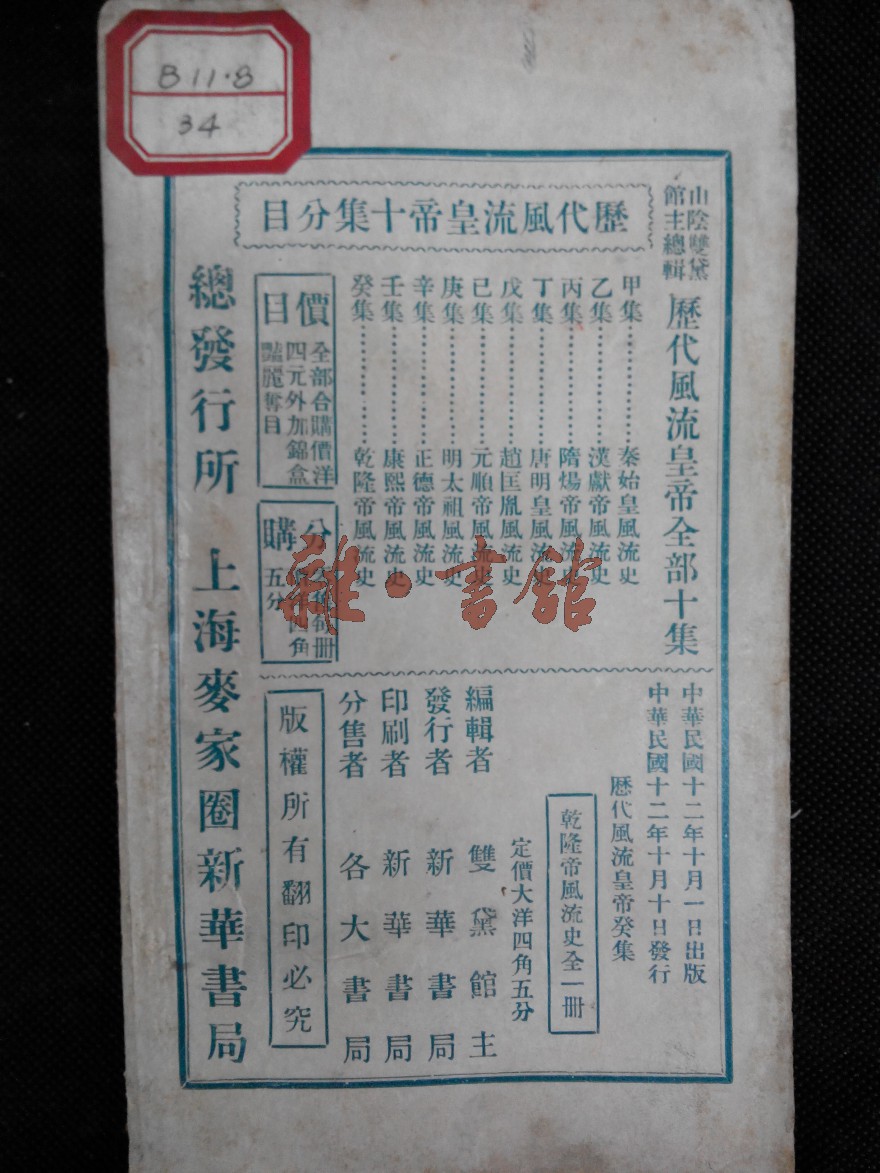 B11·8
34
山陰雙黛
館主總輯
歷代風流皇帝全部十集
歷代風流皇帝十集分目
甲集…………秦始皇風流史
乙集…………漢獻帝風流史
丙集…………隋煬帝風流史
丁集…………唐明皇風流史
戊集…………趙匡胤風流史
已集…………元順帝風流史
庚集…………明太祖風流史
辛集…………正德帝風流史
壬集…………康熙帝風流史
癸集…………乾隆帝風流史
價目
全部合購價洋
四元外加錦盒
豔麗奪目
分購
每冊
四角
五分
中華民國十二年十月一日出版
中華民國十二年十月十日發行
歷代風流皇帝癸集
乾隆帝風流史全一冊
定價大洋四角五分
編輯者 雙黛館主
發行者 新華書局
印刷者 新華書局
分售者 各大書局
版權所有翻印必究
總發行所 上海麥家圈新華書局
雜·書館